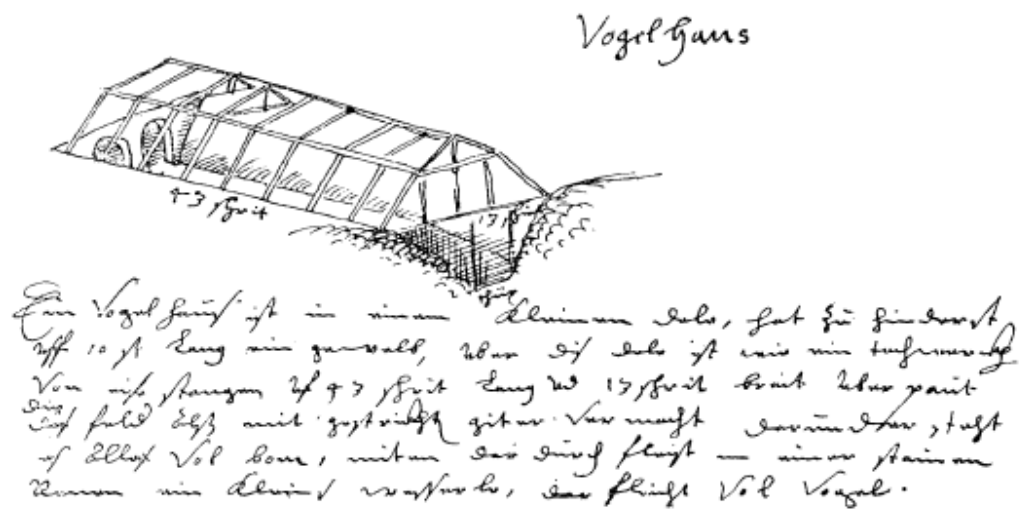 Vogelhaus
43 schrit
Ein Vogelhaus ist in einem Kleinen dele, hat zu hinderst
uff 10 st lang ein gewelb, uber dis dele ist wie ein
Von stangen uf 43 schrit lang und 17 schrit breit uber paut
die feld mit gestrickht giter vermacht darunder steht
es alles Vol bom, miten dar durch fleust in einer steinen
Renen ein Kleins wasserle, flieht Vol Vogel.